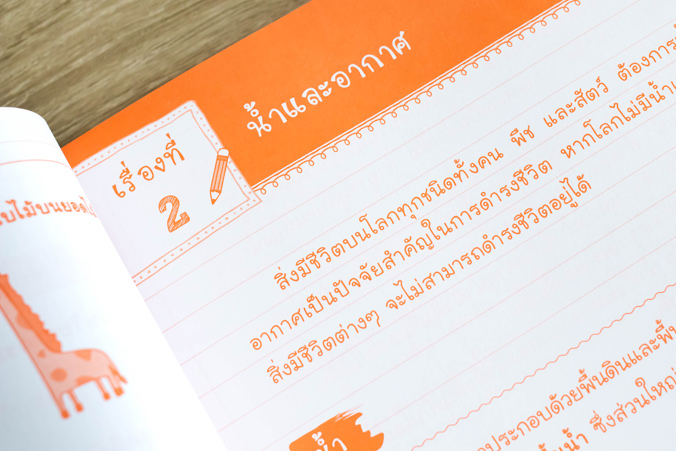 เรื่องที่
2
น้ำและอากาศ
สิ่งมีชีวิตบนโลกทุกชนิดทั้งคน พืช และสัตว์ ต้องการ
อากาศเป็นปัจจัยสำคัญในการดำรงชีวิต หากโลกไม่มีน้ำ
สิ่งมีชีวิตต่างๆ จะไม่สามารถดำรงชีวิตอยู่ได้
น้ำ
ประกอบด้วยพื้นดินและพื้น
น้ำ ซึ่งส่วนใหญ่